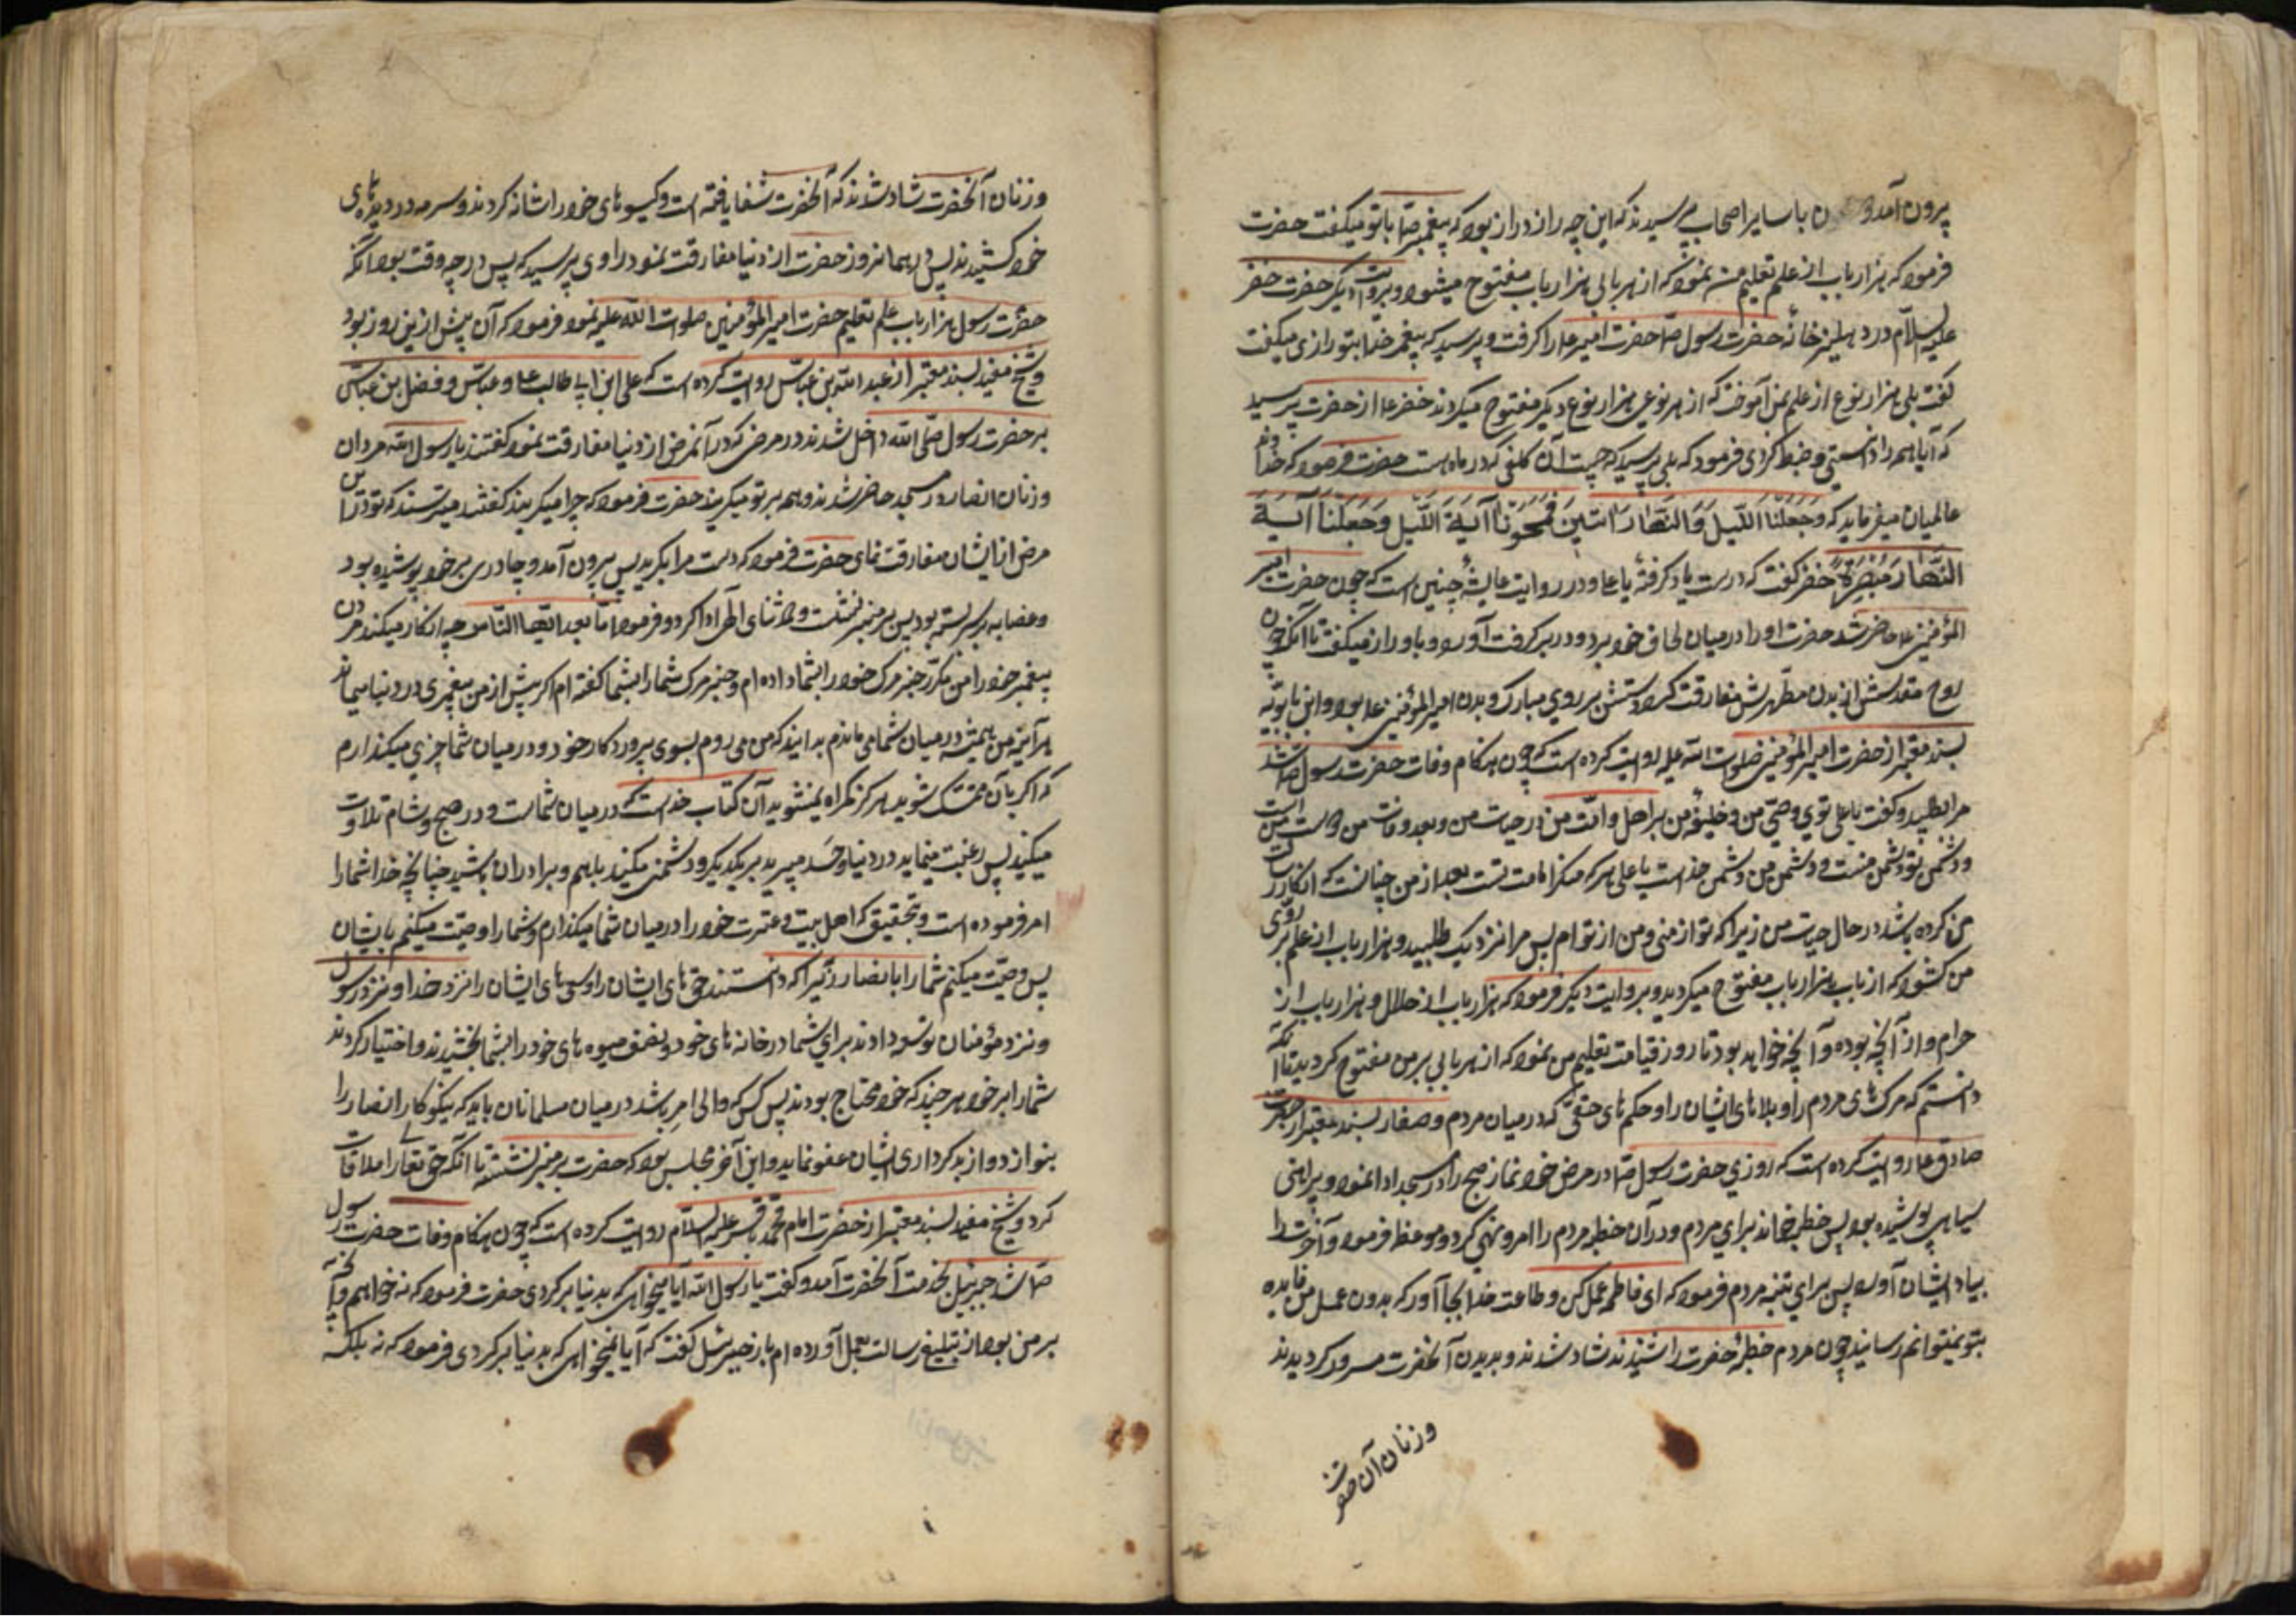 بیرون آمد و ن با سایر اصحاب پرسیدند که این چه راز دراز بود که پیغمبر صآ با تو میگفت حضرت
فرمود که هزار باب از علم تعلیم من نمود که از هر بابی هزار باب مفتوح میشود و بروایت دیگر حضرت خضر
علیه السلام در دهلیز خانه حضرت رسول صآ حضرت امیر عا را گرفت و پرسید که پیغمبر خدا بتو رازی میگفت
گفت بلی هزار نوع از علم بمن آموخت که از هر نوعی هزار نوع دیگر مفتوح میگردند خضر عا از حضرت پرسید
که آیا همه را دانستی و ضبط کردی فرمود که بلی پرسید که چیست آن کلفی که در ماه است حضرت فرمود که خداوند
عالمیان میفرماید که وَجَعَلْنَا اللَّیلَ وَالنَّهارَ ایَتَینِ فَمَحَوْنَا آیةَ اللَّیلِ وَجَعَلْنَا آیَةَ
النَّهارَ مُبْصِرَةً خضر گفت که درست یاد گرفتهٔ یا عا و در روایت عایشه چنین است که چون حضرت امیر
المؤمنین عا حاضر شد حضرت او را در میان لحاف خود برد و در بر گرفت آورد و باو راز میگفت تا آنکه چون
روح مقدسش از بدن مطهرش مفارقت کرد دستش بر روی مبارک و بدن امیر المؤمنین عا بود و ابن بابویه
بسند معتبر از حضرت امیر المؤمنین صلوات الله علیه روایت کرده است که چون هنگام وفات حضرت رسول صآ شد
مرا طلبید و گفت یا علی توی وصی من و خلیفهٔ من بر اهل و امت من در حیات من و بعد وفات من دوست من است
و دشمن تو دشمن منست و دشمن من دشمن خداست یا علی هر که منکر امامت تست بعد از من چنانست که انکار رسالت
من کرده باشد در حال حیات من زیرا که تو از منی و من از تو ام پس مرا نزدیک طلبید و هزار باب از علم بر روی
من گشود که از باب هزار باب مفتوح میگردید و بروایت دیگر فرمود که هزار باب از حلال و هزار باب از
حرام و از آنچه بوده و آنچه خواهد بود تا روز قیامت تعلیم من نمود که از هر بابی بر من مفتوح گردید تا آنکه
دانستم که مرک های مردم را و بلا های ایشان را و حکم های حقی که در میان مردم و صفار بسند معتبر از حضرت
صادق عا روایت کرده است که روزی حضرت رسول صآ در مرض خود نماز صبح را در مسجد ادا نمود و پیراهنی
سیاهی پوشیده بود پس خطبه خواند برای مردم و در آن خطبه مردم را امر و نهی کرد و موعظه فرمود و آخرت را
بیاد ایشان آورد پس برای تنبیه مردم فرمود که ای فاطمه عمل کن و طاعت خدا بجا آور که بدون عمل من فایده
بتو نمیتوانم رسانید چون مردم خطبهٔ حضرت را شنیدند شاد شدند و بدیدن آنحضرت مسرور گردیدند
وزنان آن حضرت
وزنان آنحضرت شاد شدند که آنحضرت شفا یافته است و گیسو های خود را شانه کردند و سرمه در دیده های
خود کشیدند پس در همانروز حضرت از دنیا مفارقت نمود راوی پرسید که پس در چه وقت بود آنکه
حضرت رسول هزار باب علم تعلیم حضرت امیر المؤمنین صلوات الله علیه نمود فرمود که آن پیش ازین روز بود
و شیخ مفید بسند معتبر از عبد الله بن عباس روایت کرده است که علی ابن ابی طالب عا و عباس و فضل بن عباس
بر حضرت رسول صلی الله داخل شدند در مرضی که در آنمرض از دنیا مفارقت نمود گفتند یا رسول الله مردان
وزنان انصار در مسجد حاضر شدند و همه بر تو میگریند حضرت فرمود که چرا میگریند گفتند میترسند که تو در این
مرض از ایشان مفارقت نمای حضرت فرمود که دست مرا بگرید پس بیرون آمد و چادری بر خود پوشیده بود
و عصابه بر سر بسته بود پس بر منبر نشست و حمد و ثنای الهی ادا کرد و فرمود اما بعد ایها الناس چه انکار میکنید مردن
پیغمبر خود را من مکرر خبر مرک خود را بشما داده ام و خبر مرک شما را بشما گفته ام اگر پیش از من پیغمبری در دنیا میماند
هر آینه من همیشه در میان شما می ماندم بدانید که من می روم بسوی پروردکار خود و در میان شما چیزی میکذارم
که اگر بآن متمسک شوید هرکز گمراه نمیشوید آن کتاب خداست که در میان شماست و در صبح و شام تلاوت
میکنید پس رغبت منماید در دنیا و حسد مبرید بر یکدیکر و دشمنی مکنید باهم و برادران باشید چنانچه خدا شما را
امر فرموده است و بتحقیق که اهل بیت و عترت خود را در میان شما میکذارم و شما را وصیت میکنم بایشان
پس وصیت میکنم شما را بانصار زیرا که دانستند حق های ایشان را و سعی های ایشان را نزد خدا و نزد رسول
و نزد مؤمنان توسعه دادند برای شما در خانه های خود و نصف میوه های خود را بشما بخشیدند و اختیار کردند
شما را بر خود هر چند که خود محتاج بودند پس کسی که والی امر باشد در میان مسلمانان باید که نیکوکار انصار را
بنوازد و از بد کرداری ایشان عفو نماید و این آخر مجلس بود که حضرت بر منبر نشست تا آنکه حق تعالی را ملاقات
کرد و شیخ مفید بسند معتبر از حضرت امام محمد باقر علیه السلام روایت کرده است که چون هنگام وفات حضرت رسول
صآ شد جبرئیل بخدمت آنحضرت آمد و گفت یا رسول الله آیا میخواهی که بدنیا برگردی حضرت فرمود که نه خواهم و آنچه
بر من بود از تبلیغ رسالت بعمل آورده ام باز جبرئیل گفت که آیا نمیخواهی که بدنیا برگردی فرمود که نه بلکه